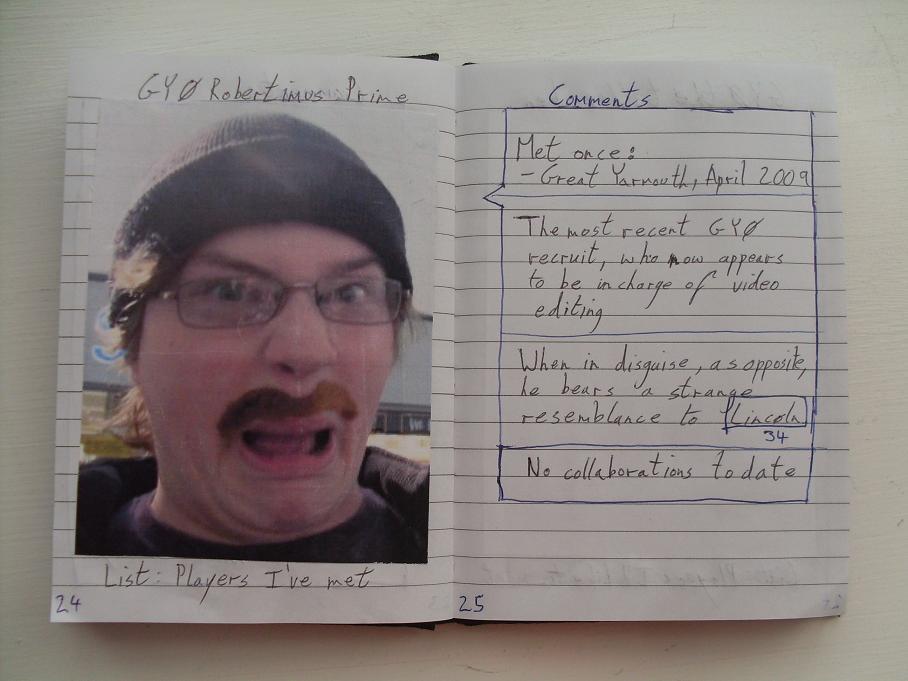 GYØ Robertimus Prime
List: Players I've met
24
Comments
Met once:
- Great Yarmouth, April 2009
The most recent GYØ
recruit, who now appears
to be in charge of video
editing
When in disguise, as opposite,
he bears a strange
resemblance to Lincoln
34
No collaborations to date
25